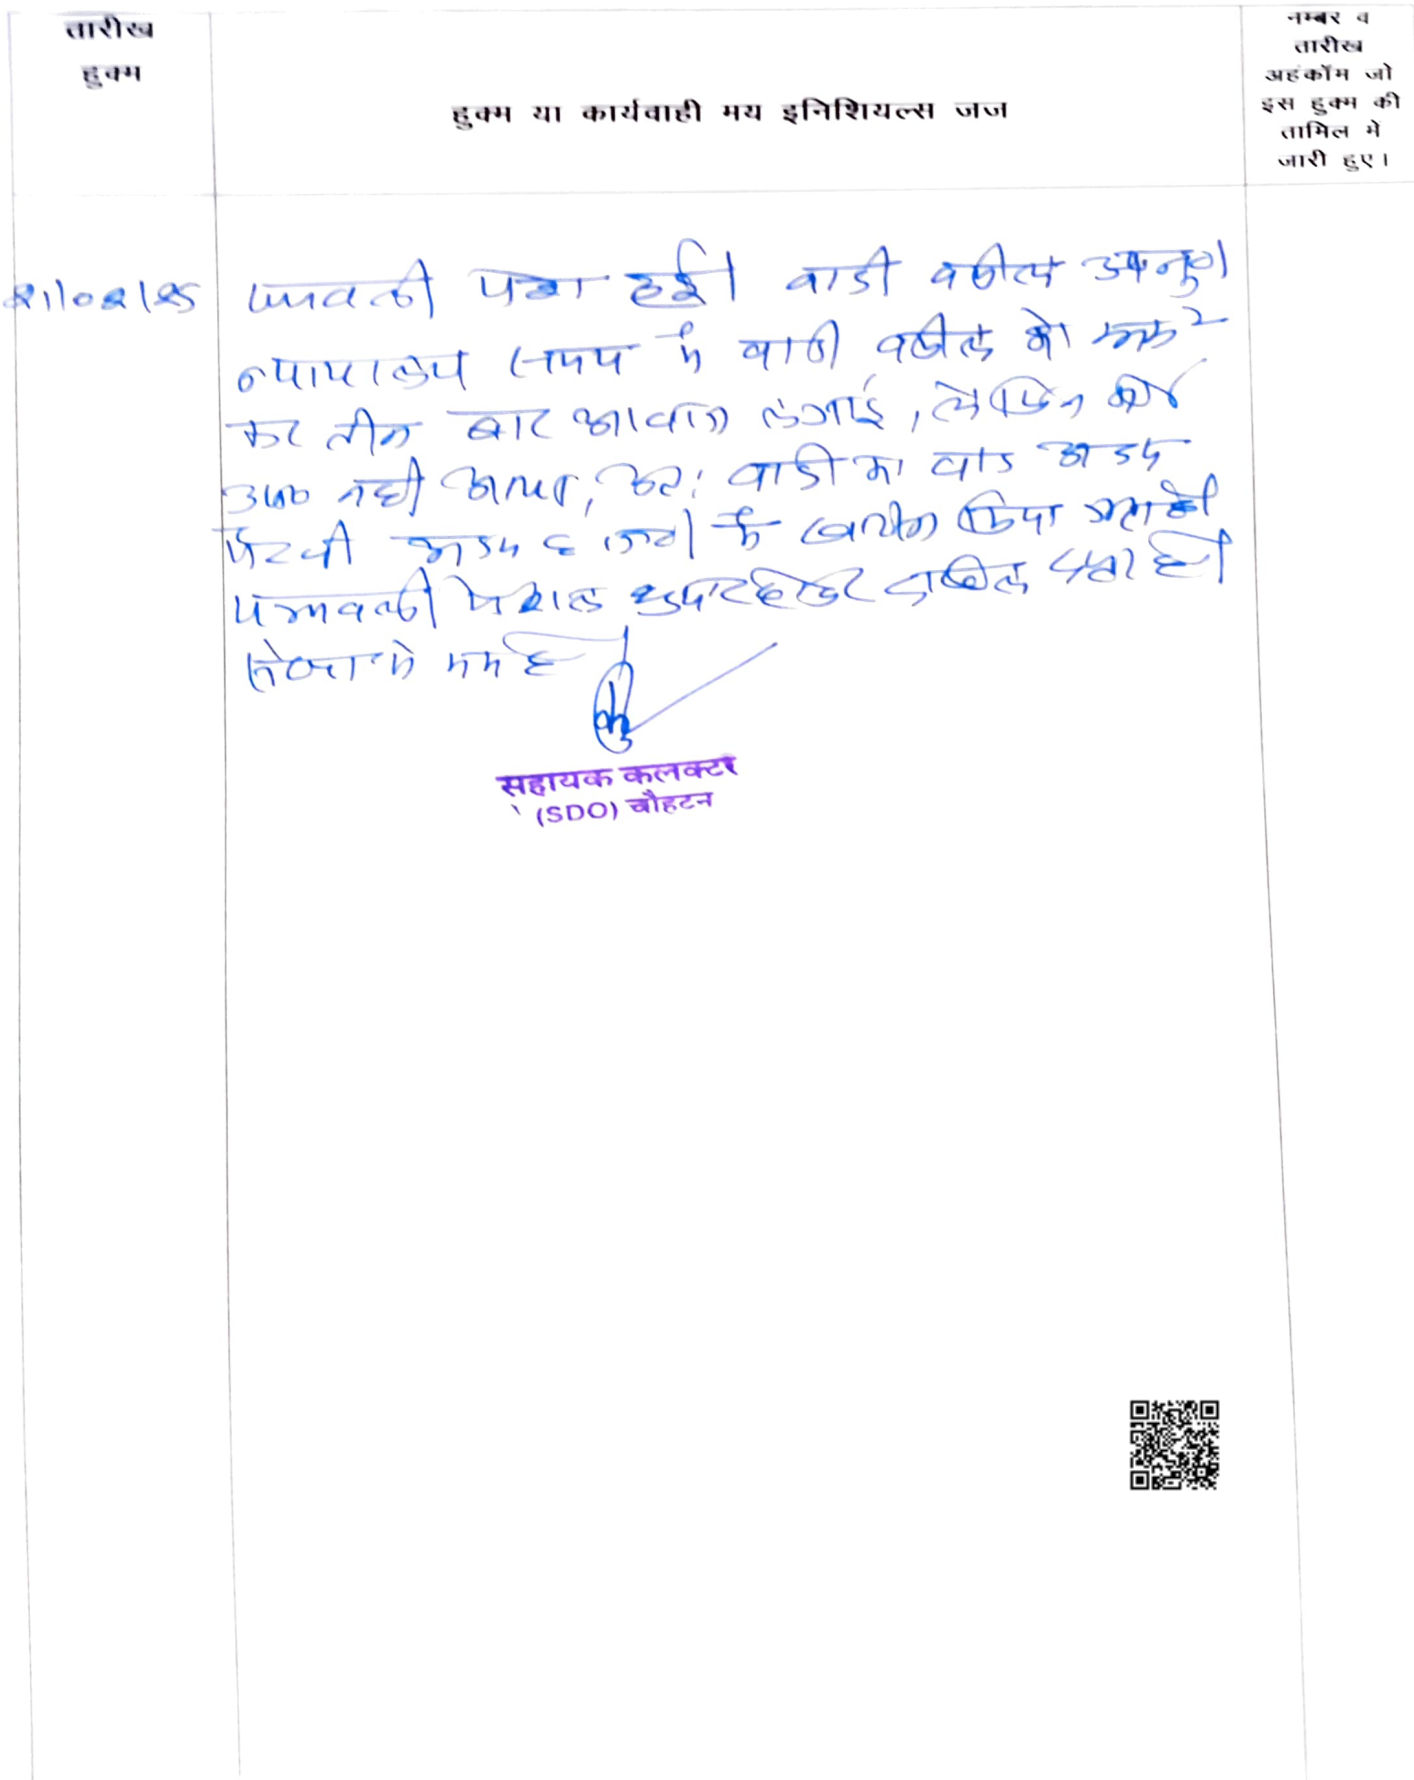 तारीख
हुक्म
हुक्म या कार्यवाही मय इनिशियल्स जज
नम्बर व
तारीख
अहकॉम जो
इस हुक्म की
तामिल मे
जारी हुए।
पत्रावली पेश हुई। वादी वकील
न्यायालय समय में वादी वकील को
कर तीन बार आवाज लगाई, लेकिन कोई
नही आया, अतः वादी का वाद अदम
पैरवी अदम में खारीज किया जाता है।
पत्रावली फैसल शुमार होकर दाखिल दफ्तर हो।
सहायक कलक्टर
(SDO) चौहटन